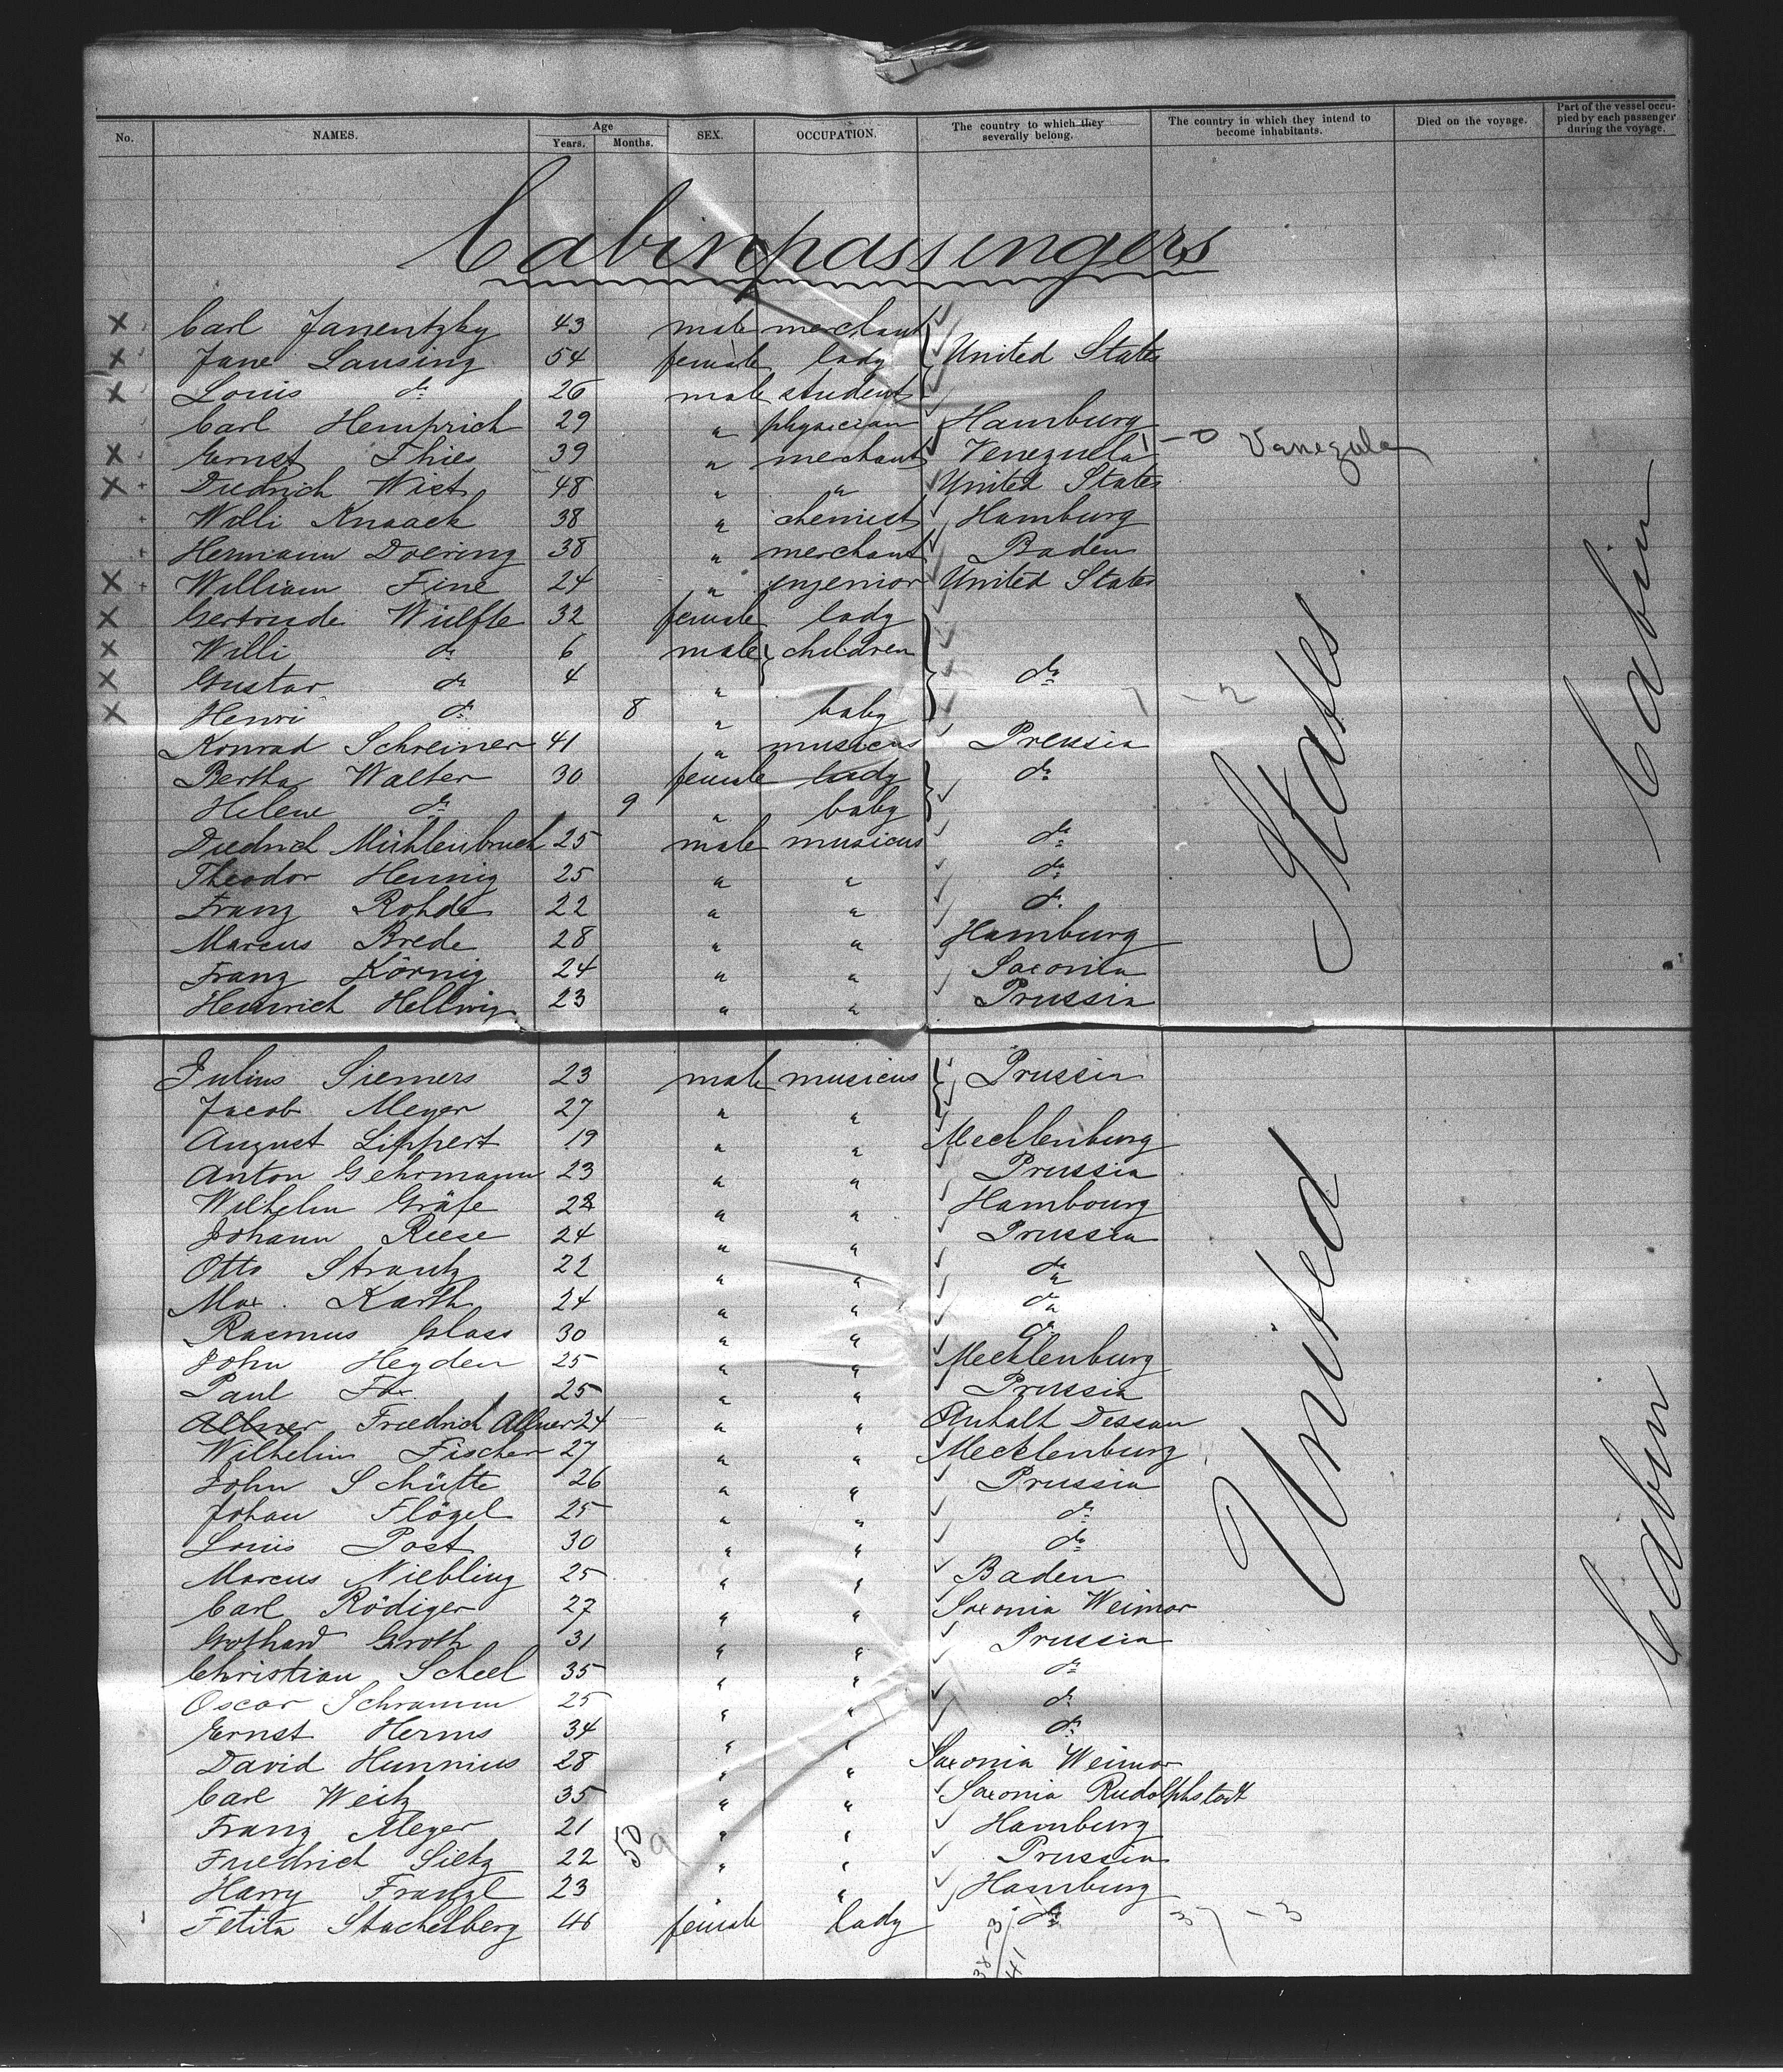 No. NAMES. Age Years. Months. SEX. OCCUPATION. The country to which they severally belong. The country in which they intend to become inhabitants. Died on the voyage. Part of the vessel occupied by each passenger during the voyage.
Cabinpassengers
Carl Janentzky 43 male merchant
Jane Lansing 54 female lady United States
Louis do 26 male student
Carl Hemprich 29 " physician Hamburg
Ernst Thies 39 " merchant Venezuela - 0 Vanezula
Diedrich Wist 48 " " United States
Willi Knaack 38 " chemist Hamburg
Hermann Doering 38 " merchant Baden
William Fine 24 " engenior United States
Gertrude Wülfte 32 female lady
Willi do 6 male children
Gustav do 4 " do
Henri do 8 " baby
Konrad Schreiner 41 " musicus Preusia
Bertha Walter 30 female lady do
Helene do 9 " baby
Diedrich Mühlenbruch 25 male musicus do
Theodor Hennig 25 " " do
Franz Rohde 22 " " do
Marcus Brede 28 " " Hamburg
Franz Körnig 24 " " Saxonia
Heinrich Hellwig 23 " " Prussia
States
Cabin
Julius Siemers 23 male musicus Prussia
Jacob Meyer 27 " "
August Lippert 19 " " Mecklenburg
Anton Gehrmann 23 " " Prussia
Wilhelm Gräfe 22 " " Hambourg
Johann Reese 24 " " Prussia
Otto Strantz 22 " " do
Max Karth 24 " " do
Rasmus Glass 30 " " do
John Heyden 25 " " Mecklenburg
Paul Fox 25 " " Prussia
Allner Friedrich Allner 24 " " Anhalt Dessau
Wilhelm Fischer 27 " " Mecklenburg
John Schütte 26 " " Prussia
Johan Flögel 25 " " do
Louis Post 30 " " do
Marcus Niebling 25 " " Baden
Carl Rödiger 27 " " Saxonia Weimar
Gothard Groth 31 " " Prussia
Christian Scheel 35 " " do
Oscar Schramm 25 " " do
Ernst Herms 34 " " do
David Hunnius 28 " " Saxonia Weimar
Carl Weitz 35 " " Saxonia Rudolphstadt
Franz Meyer 21 " " Hamburg
Friedrich Sietz 22 " " Prussia
Harry Franzl 23 " " Hamburg
Felita Stachelberg 46 female lady do 37 - 3
United
Cabin
50
9
38-3
41